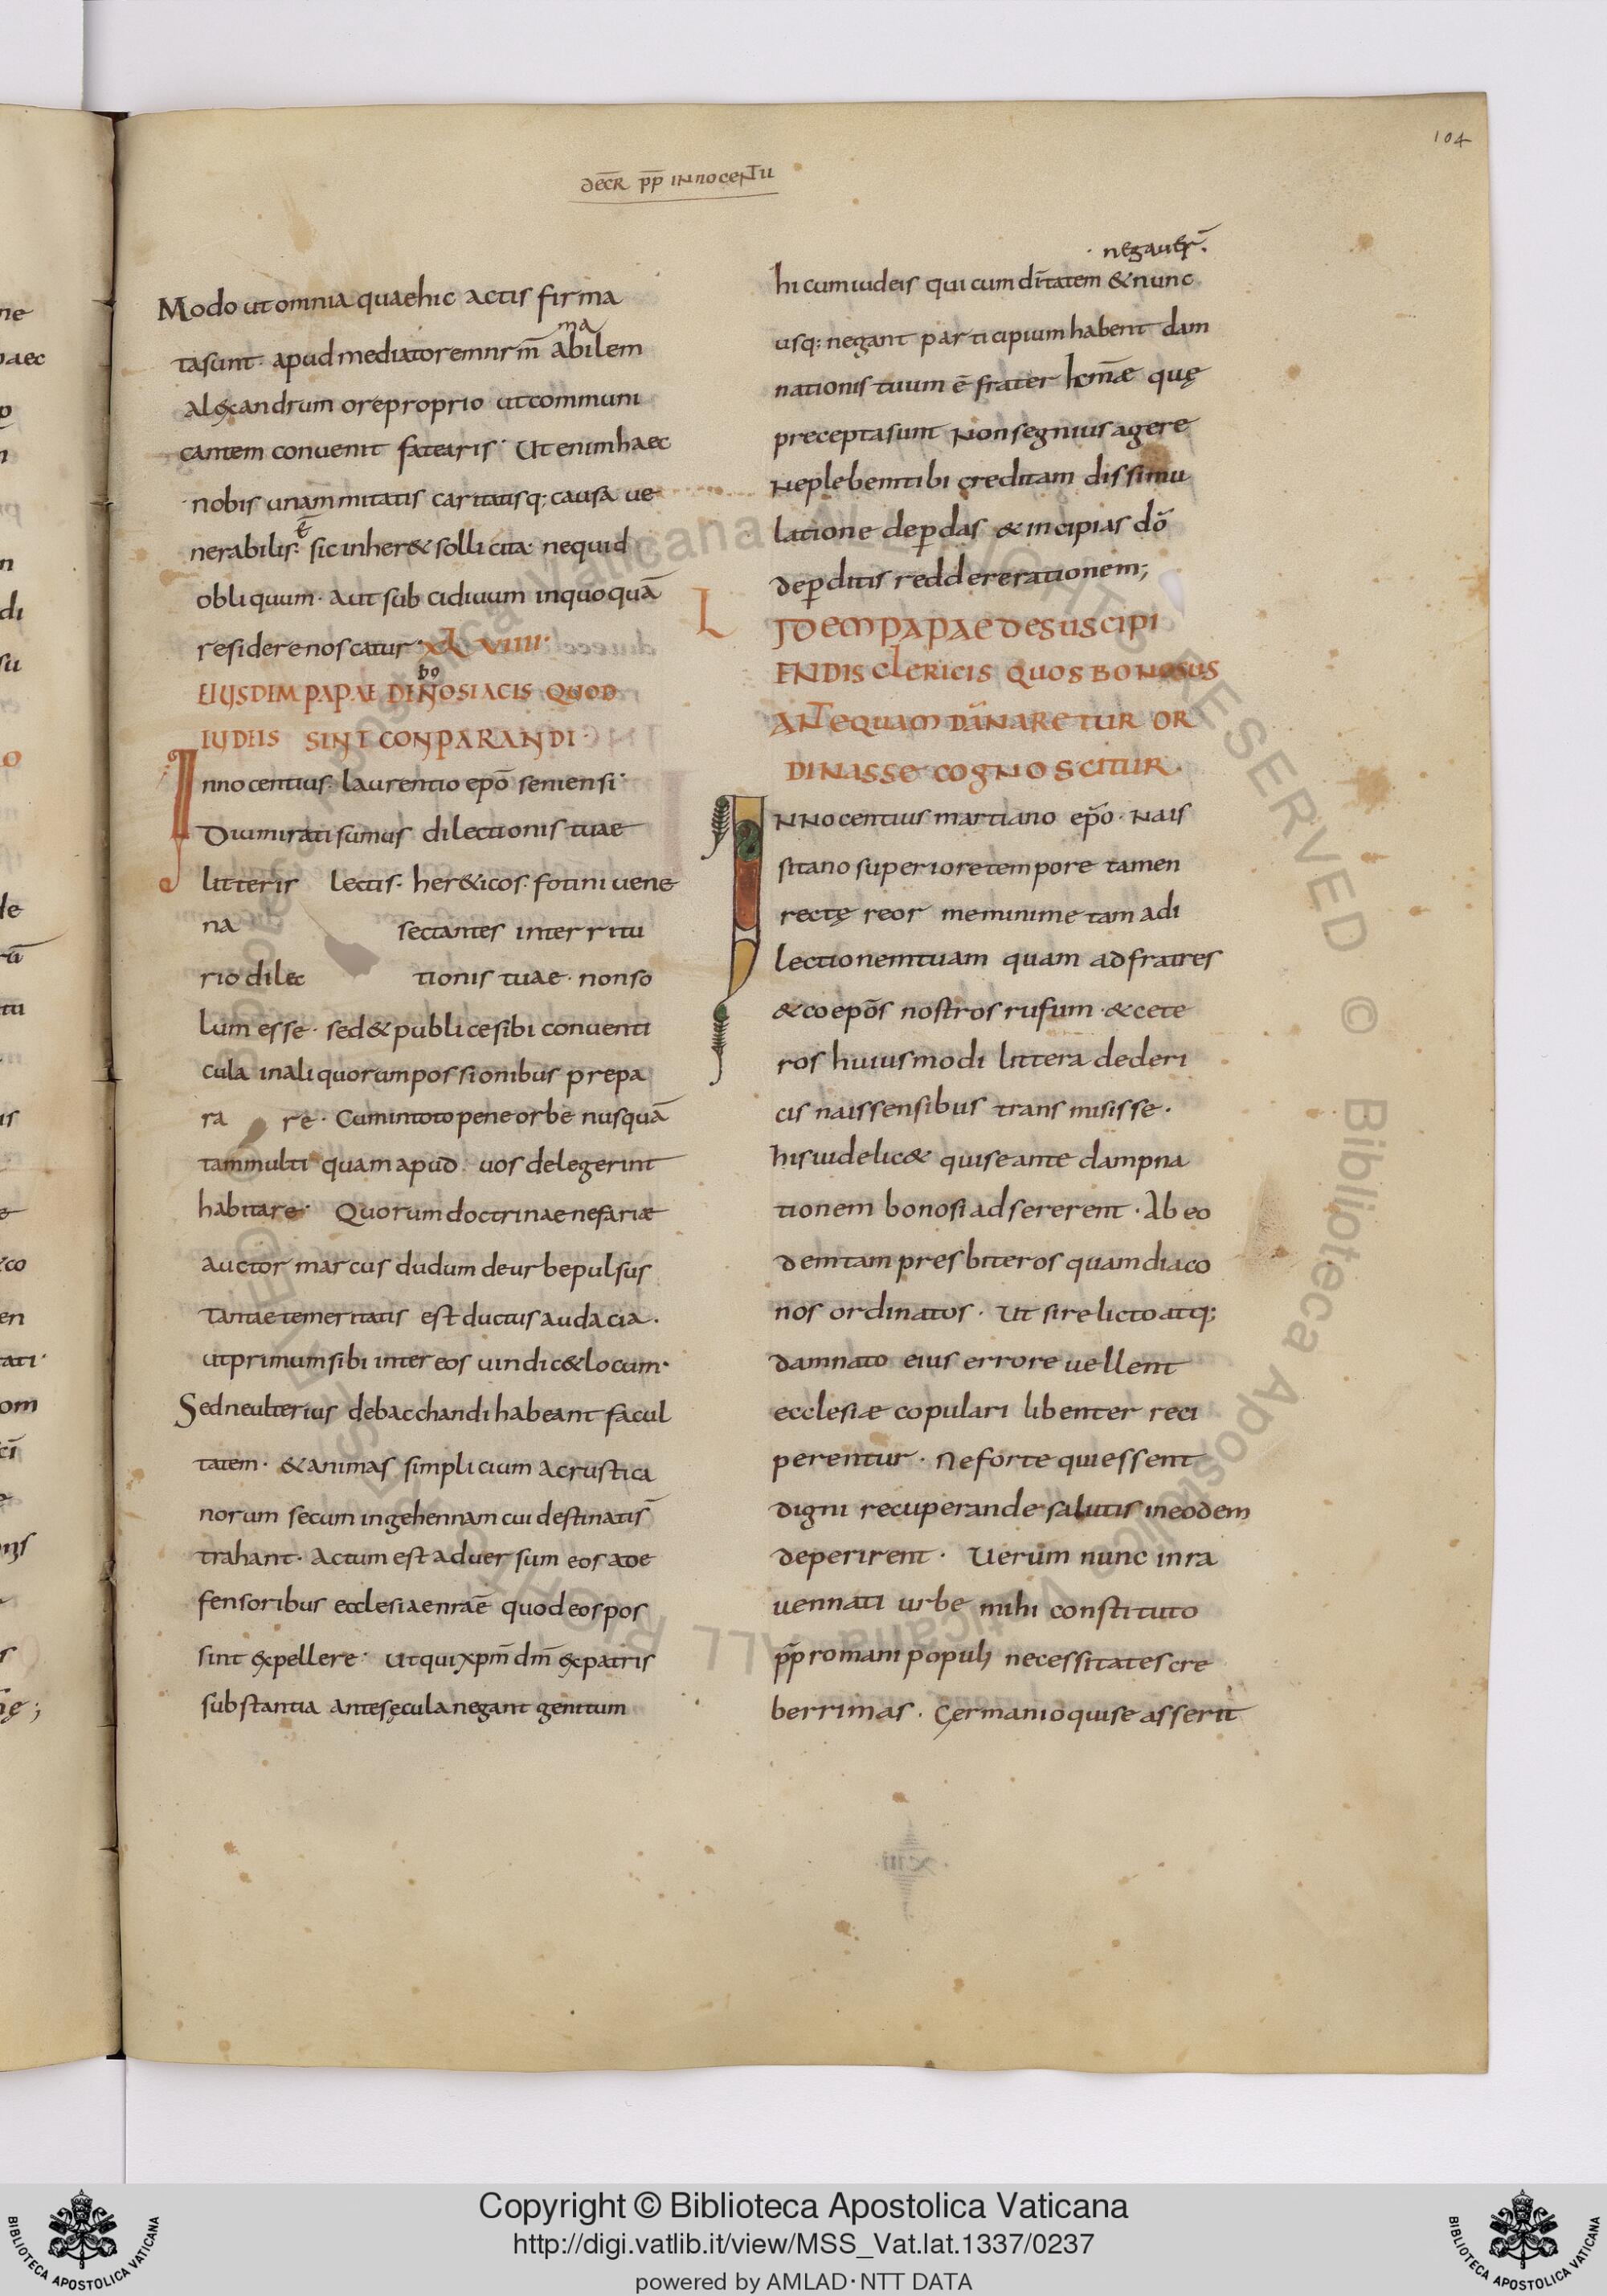 104
decr̄ pp̄ innocentii
Modo ut omnia quae hic actis firma
ta sunt · apud mediatorem nr̄m̄ abilem
ma
alexandrum ore proprio ut communi
cantem conuenit fatearis · Ut enim haec
nobis unanimitatis caritatisq; causa ue
nerabilis · ē sic inher& sollicita · nequid
obliquum · aut subcidiuum inquoquā
residere noscatur · XLVIIII ·
EIUSDIM PAPAE DINOSIACIS QUOD
bo
IUDEIS SINT CONPARANDI ·
Innocentius · laurentio epō seniensi ·
Diu mirati sumus dilectionis tuae
litteris lectis · her&icos · fotini uene
na sectantes in territu
rio dilec tionis tuae · non so
lum esse · sed & publice sibi conuenti
cula in aliquorum possionibus prepa
ra re · Cum in toto pene orbe nusquā
tam multi quam apud uos delegerint
habitare · Quorum doctrinae nefariæ
auctor marcus dudum de urbe pulsus
Tantae temeritatis est ductus audacia ·
ut primum sibi inter eos uindic& locum ·
Sed ne ulterius debacchandi habeant facul
tatem · & animas simplicium ac rustica
norum secum in gehennam cui destinatis̄
trahant · Actum est aduersum eos a de
fensoribus ecclesiae nrāe quod eos pos
sint expellere · Ut qui xpm̄ dm̄ ex patris
substantia ante sęcula negant genitum
· negauer̄ ·
hi cum iudeis qui cum di̅tatem & nunc
usq; negant participium habent dam
nationis tuum ē frater km̄æ quę
precepta sunt Non segnius agere
Ne plebem tibi creditam dissimu
latione deperdas & incipias dō
deperditis reddere rationem;
L IDEM PAPAE DE SUSCIPI
ENDIS CLERICIS QUOS BONOSUS
ANTEQUAM DĀNARETUR OR
DINASSE COGNOSCITUR ·
Innocentius martiano epō · Nais
sitano superiore tempore tamen
rectę reor me minime tam adi
lectionem tuam quam ad fratres
& coepōs nostros rufum · & cete
ros huiusmodi littera dederi
cis naissensibus transmisisse ·
his uidelic& qui se ante dampna
tionem bonosi ad sererent · Ab eo
dem tam presbiteros quam diaco
nos ordinatos · Ut si relicto atq;
damnato eius errore uellent
ecclesiæ copulari libenter reci
perentur · Ne forte qui essent
digni recuperande salutis in eodem
deperirent · Uerum nunc in ra
uennati urbe mihi constituto
pp̄ romani populi necessitates cre
berrimas · Germanio qui se asserit
Copyright © Biblioteca Apostolica Vaticana
http://digi.vatlib.it/view/MSS_Vat.lat.1337/0237
powered by AMLAD·NTT DATA
BIBLIOTECA APOSTOLICA VATICANA
BIBLIOTECA APOSTOLICA VATICANA